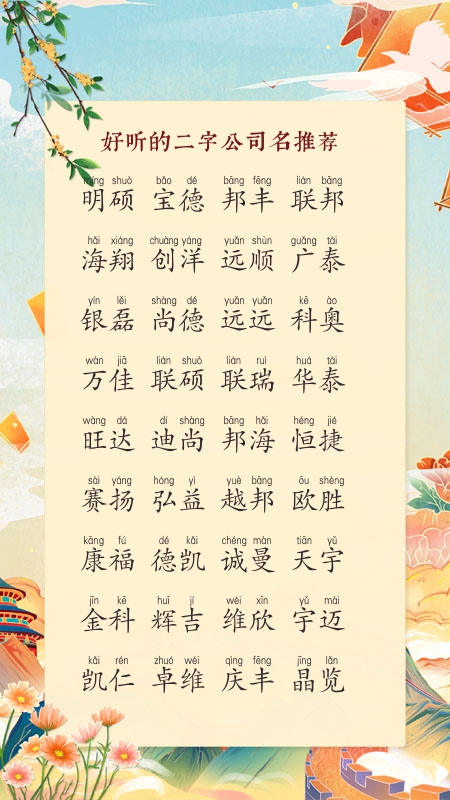 好听的二字公司名推荐
míng shuò bǎo dé bāng fēng lián bāng
明硕 宝德 邦丰 联邦
hǎi xiáng chuàng yáng yuǎn shùn guǎng tài
海翔 创洋 远顺 广泰
yín lěi shàng dé yuǎn yuǎn kē ào
银磊 尚德 远远 科奥
wàn jiā lián shuò lián ruì huá tài
万佳 联硕 联瑞 华泰
wàng dá dí shàng bāng hǎi héng jié
旺达 迪尚 邦海 恒捷
sài yáng hóng yì yuè bāng ōu shèng
赛扬 弘益 越邦 欧胜
kāng fú dé kǎi chéng màn tiān yǔ
康福 德凯 诚曼 天宇
jīn kē huī jí wéi xīn yǔ mài
金科 辉吉 维欣 宇迈
kǎi rén zhuó wéi qìng fēng jīng lǎn
凯仁 卓维 庆丰 晶览